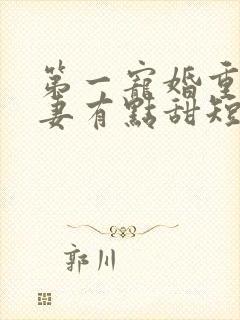 第一寵婚重
妻有點甜短
郭川